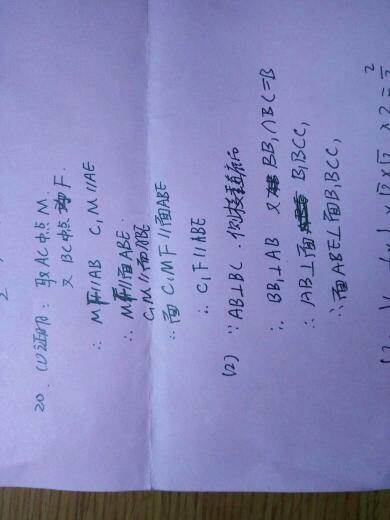 20. (1)证明: 取AC中点M.
又BC中点F.
∴ MF∥AB C₁M∥AE
∴ MF∥面ABE.
C₁M∥面ABE
∴ 面C₁MF∥面ABE
∴ C₁F∥ABE
(2) ∵ AB⊥BC.侧棱垂底
∴ BB₁⊥AB 又BB₁∩BC=B
∴ AB⊥面B₁BCC₁
∴ 面ABE⊥面B₁BCC₁